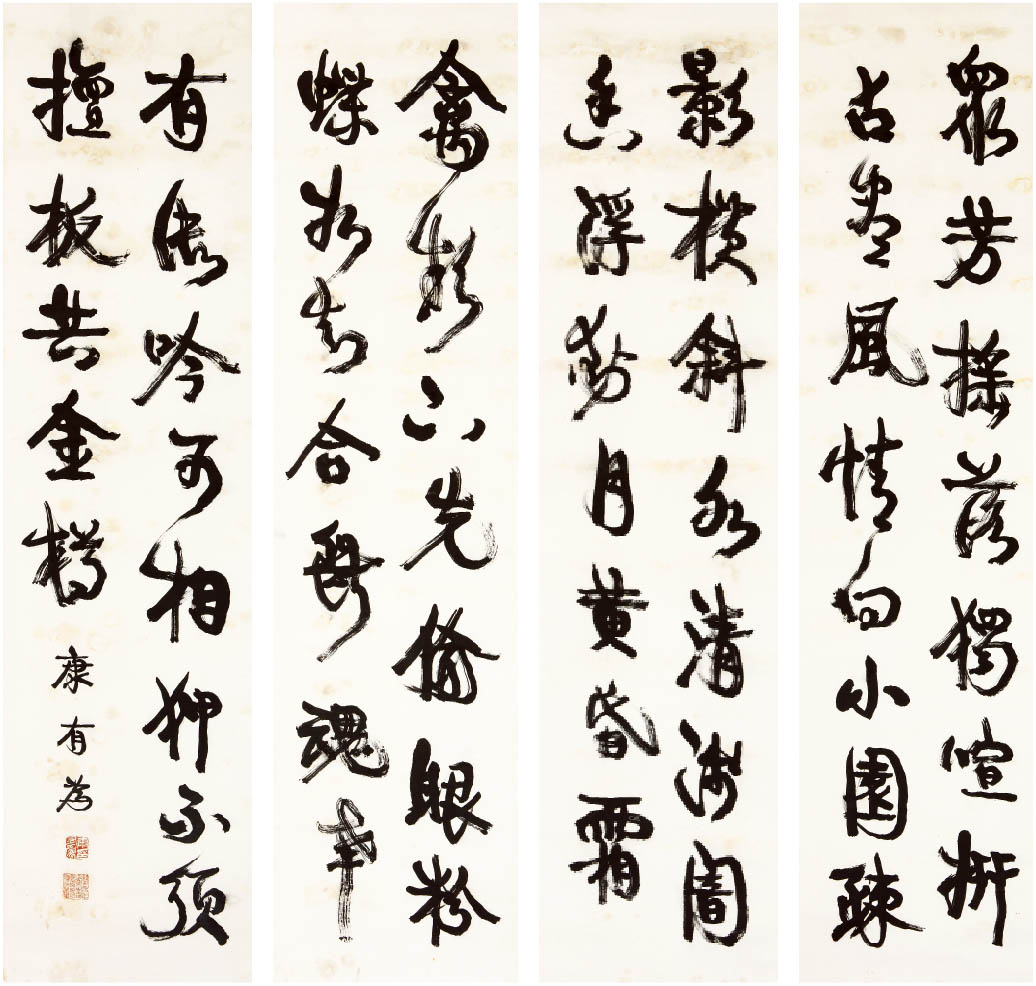 眾芳搖落獨喧妍
占盡風情向小園疎
影橫斜水清淺闇
香浮動月黃昏霜
禽欲下先偷眼粉
蝶如知合斷魂幸
有微吟可相狎不須
檀板共金樽
康有為